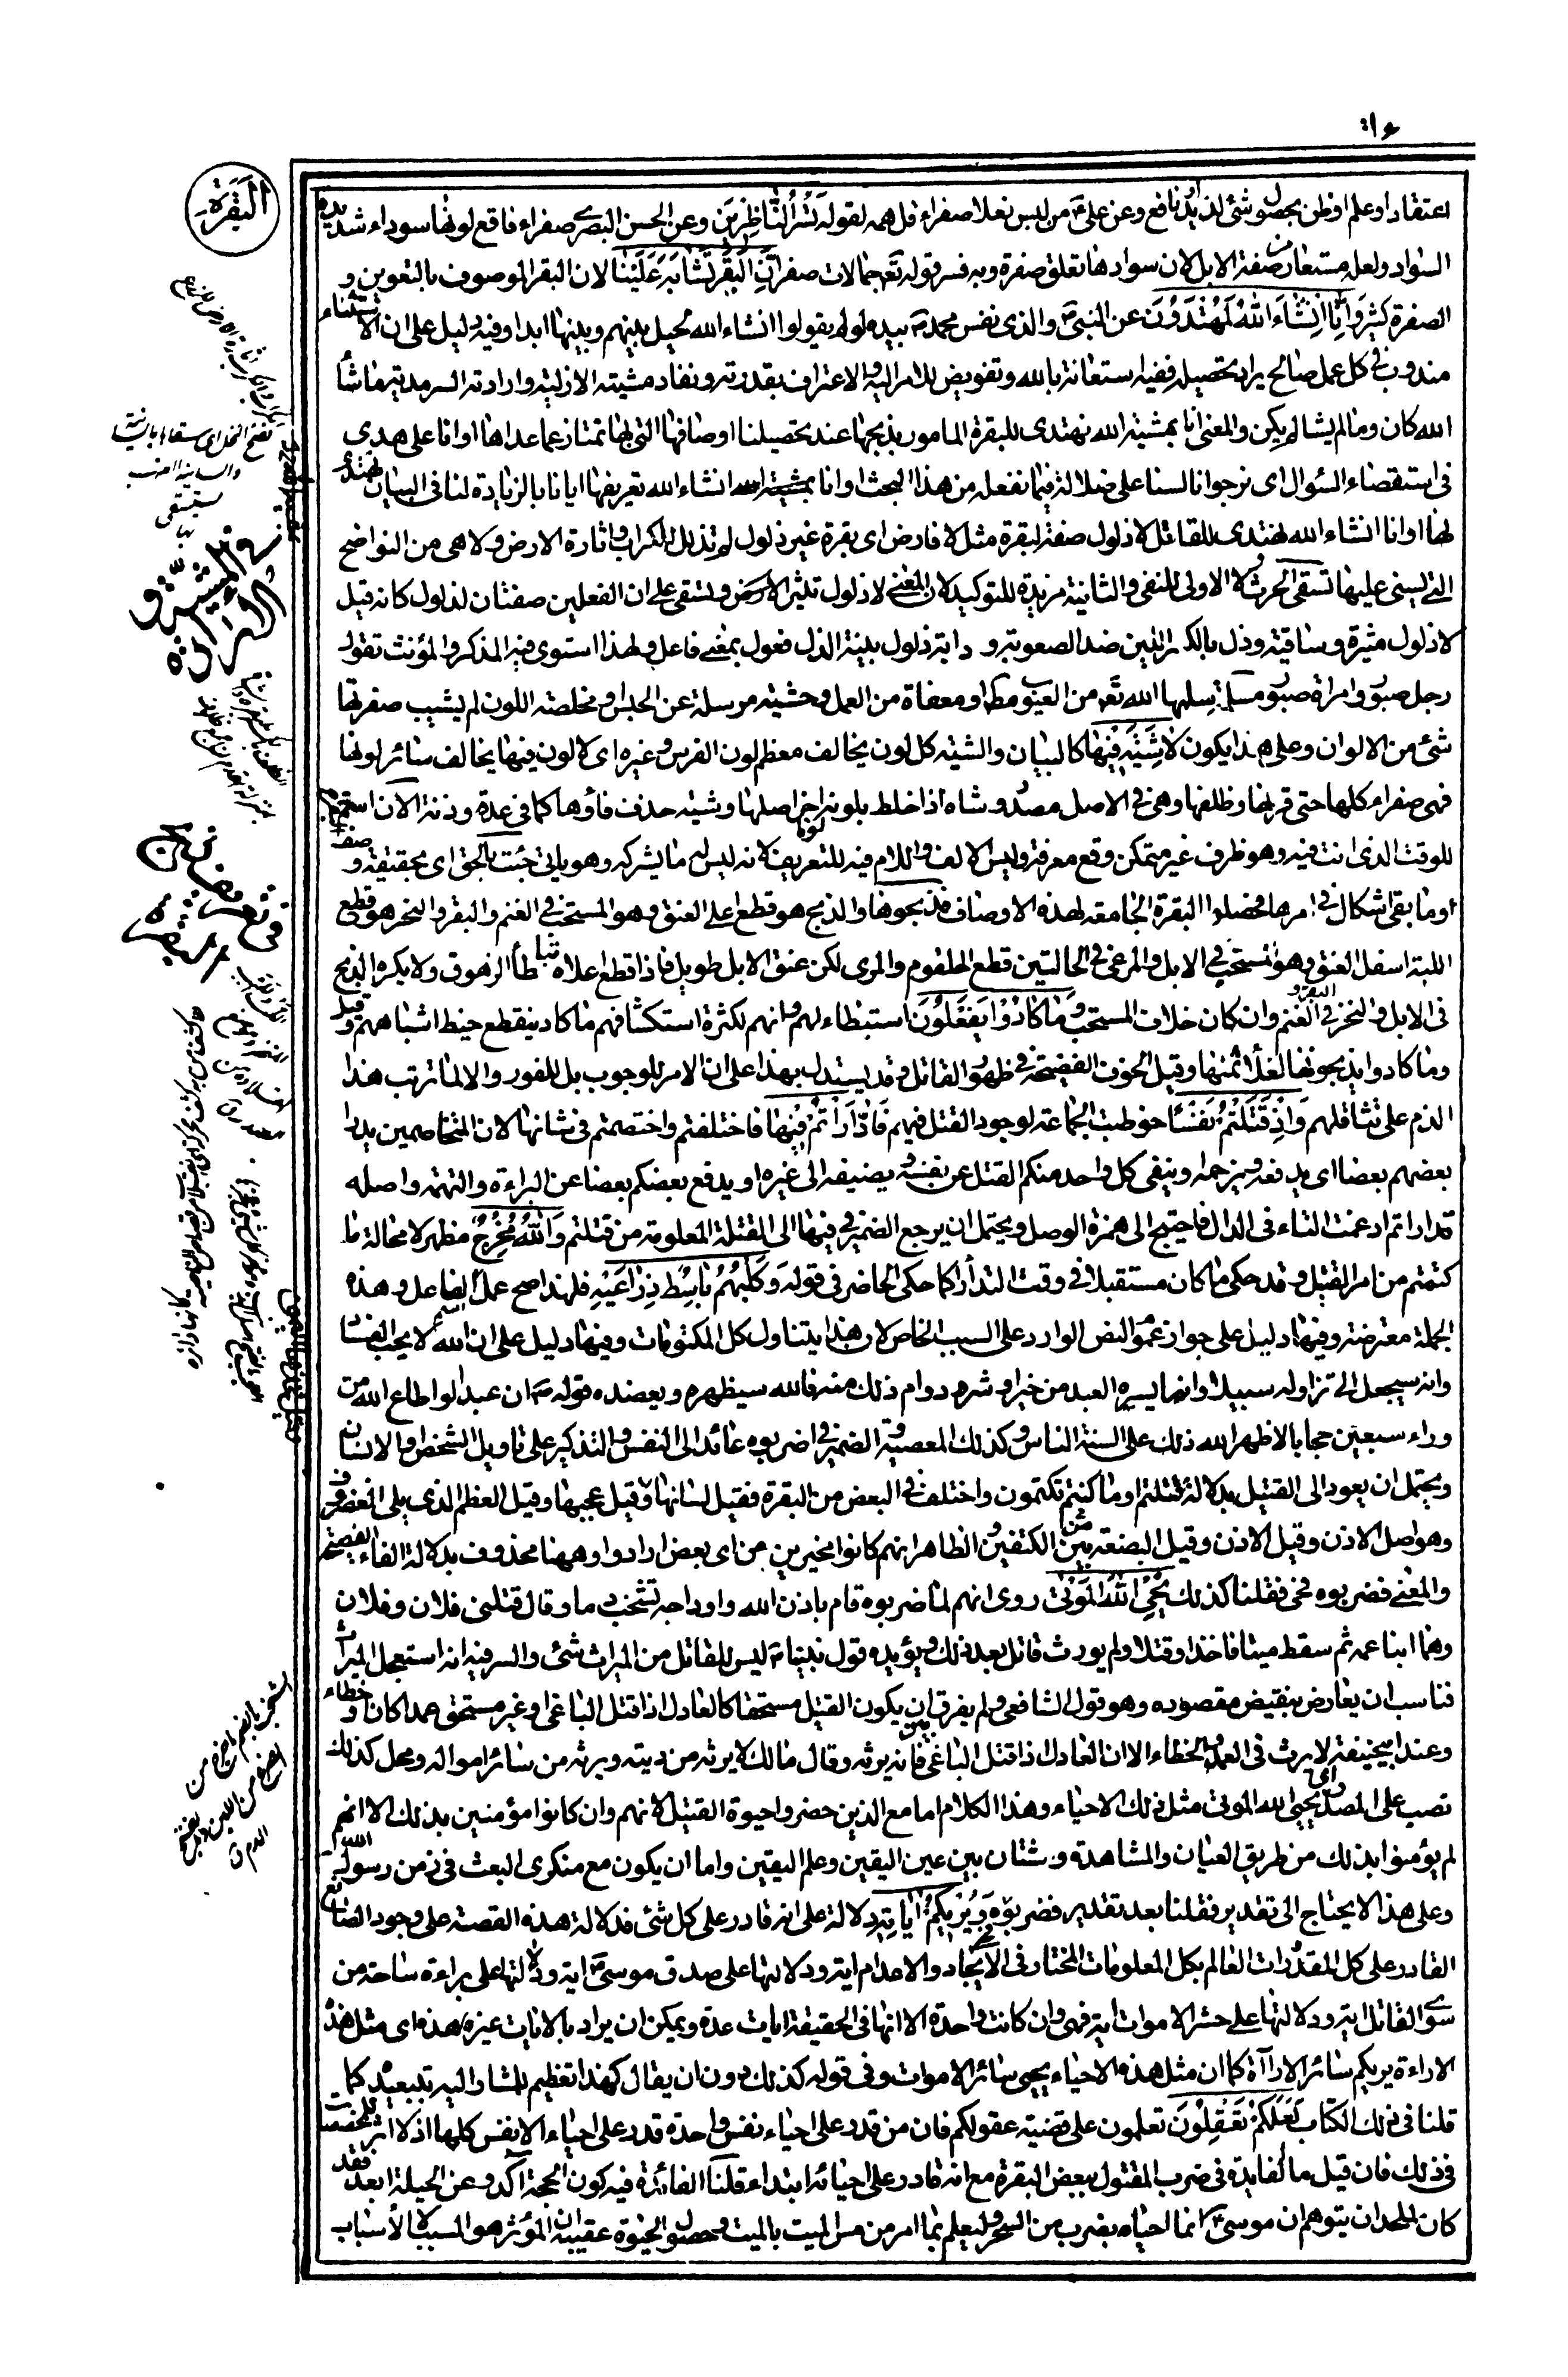 البقرة
اعتقاد او علم او ظن بحصول شئ لذيذ نافع وعن علي ع من لبس نعلا صفراء قل همه لقوله تسر الناظرين وعن الحسن البصرى صفراء فاقع لونها سوداء شديدة
السواد ولعله مستعار من صفة الابل لان سوادها تعلق صفرة وبه فسر قوله تع جمالات صفر ان البقر تشابه علينا لان البقر الموصوف بالتعوين و
الصفرة كثير وانا انشاء الله لمهتدون عن النبى ص والذى نفس محمد ص بيده لو لم يقولوا انشاء الله لحيل بينهم وبينها ابدا وفيه دليل على ان الاستثناء
مندوب فى كل عمل صالح يراد تحصيله ففيه استعانة بالله وتفويض للامر اليه والاعتراف بقدرته ونفاد مشيته الازلية وارادته السرمدية ما شأ
الله كان وما لم يشا لم يكن والمعنى انا بمشية الله نهتدى للبقرة المامور بذبحها عند تحصيلنا اوصافها التى بها تمتاز عما عداها او انا على هدى
فى استقصاء السؤال اى نرجوا انا لسنا على ضلالة فيما نفعله من هذا البحث او انا انشاء الله تعريفها ايانا بالزيادة لنا فى البيان نهتدى
لها او انا انشاء الله نهتدى للقاتل لا ذلول صفة لبقرة مثل لا فارض اى بقرة غير ذلول لم تذلل للكراب واثارة الارض ولا هى من النواضح
التى يسنى عليها تسقى الحرث ولا الاولى للنفى والثانية مزيدة للتوكيد لان المعنى لا ذلول تثير الارض وتسقى على ان الفعلين صفتان لذلول كانه قيل
لا ذلول مثيرة وساقية وذل بالكسر اللين ضد الصعوبة و دابة ذلول بينة الذل فعول بمعنى فاعل ولهذا استوى فيه المذكر والمؤنث تقول
رجل صبور وامراة صبور مسلمة سلمها الله تع من العيوب مطلقا او معفاة من العمل وحشية مرسلة عن الحبس او مخلصة اللون لم يشب صفرتها
شئ من الالوان وعلى هذا يكون لا شية فيها كالبيان والشية كل لون يخالف معظم لون الفرس وغيره اى لا لون فيها يخالف سائر لونها
فهى صفراء كلها حتى قرنها وظلفها وهى فى الاصل مصدر وشاه اذا خلط بلونه لونا اخر اصلها وشية حذف فاؤها كما فى عدة وزنة الان اسم
للوقت الذى انت فيه وهو ظرف غير متمكن وقع معرفة وليس الالف واللام فيه للتعريف لانه ليس له ما يشركه وهو يأتى جئت بالحق اى بحقيقة وصف
او ما بقى اشكال فى امرها فحصلوا البقرة الجامعة لهذه الاوصاف فذبحوها والذبح هو قطع اعلى العنق وهو المستحب فى الغنم والبقر والنحر هو قطع
اللبة اسفل العنق وهو المستحب فى الابل والمرعى فى الحالتين قطع الحلقوم والمرى لكن عنق الابل طويل فاذا قطع اعلاه تباطأ الزهوق ولا يكره الذبح
فى الابل والنحر فى البقر و الغنم وان كان خلاف المستحب وما كادوا يفعلون استبطاء لهم وانهم لكثرة استكشافهم ما كاد ينقطع خيط اشباههم وقيل
وما كادوا يذبحونها لغلاء ثمنها وقيل لخوف الفضيحة فى ظهور القاتل وقد يستدل بهذا على ان الامر للوجوب بل للفور والا لما ترتب هذا
الذم على تثاقلهم واذ قتلتم نفسا خوطبت الجماعة لوجود القتل فيهم فادارأتم فيها فاختلفتم واختصمتم فى شانها لان المتخاصمين يدرأ
بعضهم بعضا اى يدفعه ويزحمه او ينفى كل واحد منكم القتل عن نفسه ويضيفه الى غيره او يدفع بعضكم بعضا عن البراءة والتهمة واصله
تدارأتم ادغمت التاء فى الدال فاحتيج الى همزة الوصل ويحتمل ان يرجع الضمير فى فيها الى القتلة المعلومة من قتلتم والله مخرج مظهر لا محالة ما
كتمتم من امر القتيل وقد حكى ما كان مستقبلا فى وقت التدارأ كما حكى الحاضر فى قوله وكلبهم باسط ذراعيه فلهذا صح عمل اسم الفاعل وهذه
الجملة معترضة وفيها دليل على جواز عموم النص الوارد على السبب الخاص لان هذا يتناول كل المكتومات وفيها دليل على ان الله لا يحب الفساد
وانه سيجعل الى تزاوله سبيلا وانما يسره العبد من خير او شر ودوام ذلك منه فالله سيظهره ويعضده قوله ص ان عبدا لو اطاع الله من
وراء سبعين حجابا لاظهر الله ذلك على السنة الناس وكذلك المعصية والضمير فى اضربوه عائد الى النفس والتذكير على تاويل الشخص والانسان
ويحتمل ان يعود الى القتيل بدلالة قتلتم وما كنتم تكتمون واختلف فى البعض من البقرة فقيل لسانها وقيل عجبها وقيل العظم الذى يلى الغضروف
وهو اصل الاذن وقيل الاذن وقيل البضعة من بين الكتفين والظاهر انهم كانوا مخيرين من اى بعض ارادوا وههنا محذوف بدلالة الفاء الفصيحة
والمعنى فضربوه فحى فقلنا كذلك يحى الله الموتى روى انهم لما ضربوه قام باذن الله واوداجه تشخب دما وقال قتلنى فلان وفلان
وهما ابنا عمه ثم سقط ميتا فاخذا وقتلا ولم يورث قاتل بعد ذلك ويؤيده قول نبينا ص ليس للقاتل من الميراث شئ والسر فيه انه استعجل الميراث
فناسب ان يعارض بنقيض مقصوده وهو قول الشافعى ولم يفرق بين ان يكون القتيل مستحقا كالعادل اذا قتل الباغى او غير مستحق عمدا كان او خطاء
وعند ابيحنيفة لا يرث فى العمد والخطاء الا ان العادل اذا قتل الباغى فانه يرثه وقال مالك لا يرثه من ديته ويرثه من سائر امواله ومحل كذلك
نصب على المصدر اى يحيى الله الموتى مثل ذلك الاحياء وهذا الكلام اما مع الذين حضروا حيوة القتيل لانهم وان كانوا مؤمنين بذلك الا انهم
لم يؤمنوا بذلك من طريق العيان والمشاهدة وشتان بين عين اليقين وعلم اليقين واما ان يكون مع منكرى البعث فى زمن رسول الله
وعلى هذا لا يحتاج الى تقدير فقلنا بعد تقدير فضربوه ويريكم اياته دلالة على انه قادر على كل شئ فدلالة هذه القصة على وجود الصانع
القادر على كل المقدورات العالم بكل المعلومات المختار فى الايجاد والاعدام اية ودلالتها على صدق موسى ع اية ودلالتها على براءة ساحة من
سوى القاتل اية ودلالتها على حشر الاموات اية فهى وان كانت واحدة الا انها فى الحقيقة ايات عدة ويمكن ان يراد بالايات غير هذه اى مثل هذه
الاراءة يريكم سائر الاراآة كما ان مثل هذه الاحياء يحيى سائر الاموات وفى قوله كذلك دون ان يقال كهذا تعظيم للمشار اليه بتبعيد كما
قلنا فى ذلك الكتاب لعلكم تعقلون تعملون على قضية عقولكم فان من قدر على احياء نفس واحدة قدر على احياء الانفس كلها اذ لا اثر للمخصصات
فى ذلك فان قيل ما الفايدة فى ضرب المقتول ببعض البقرة مع انه قادر على احيائه ابتداء قلنا الفائدة فيه كون الحجة اكد وعن الحيلة ابعد فقد
كان الملحد ان يتوهم ان موسى ع انما احياه بضرب من السحر وليعلم بما امر من مس الميت بالميت وحصول الحيوة عقيبه ان المؤثر هو المسبب لا الاسباب